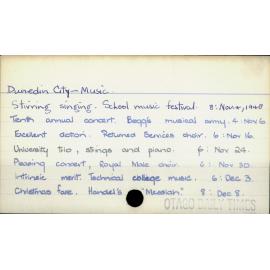 Dunedin City—Music.
Stirring singing. School music festival. 8: Nov 4, 1948
Tenth annual concert. Begg's musical army. 4: Nov 6
Excellent diction. Returned Services choir. 6: Nov 16.
University trio, strings and piano. 6: Nov 24.
Pleasing concert, Royal Male choir. 6: Nov 30.
Intrinsic merit. Technical college music. 6: Dec 3.
Christmas fare. Handel's "Messiah." 8: Dec 8.
OTAGO DAILY TIMES